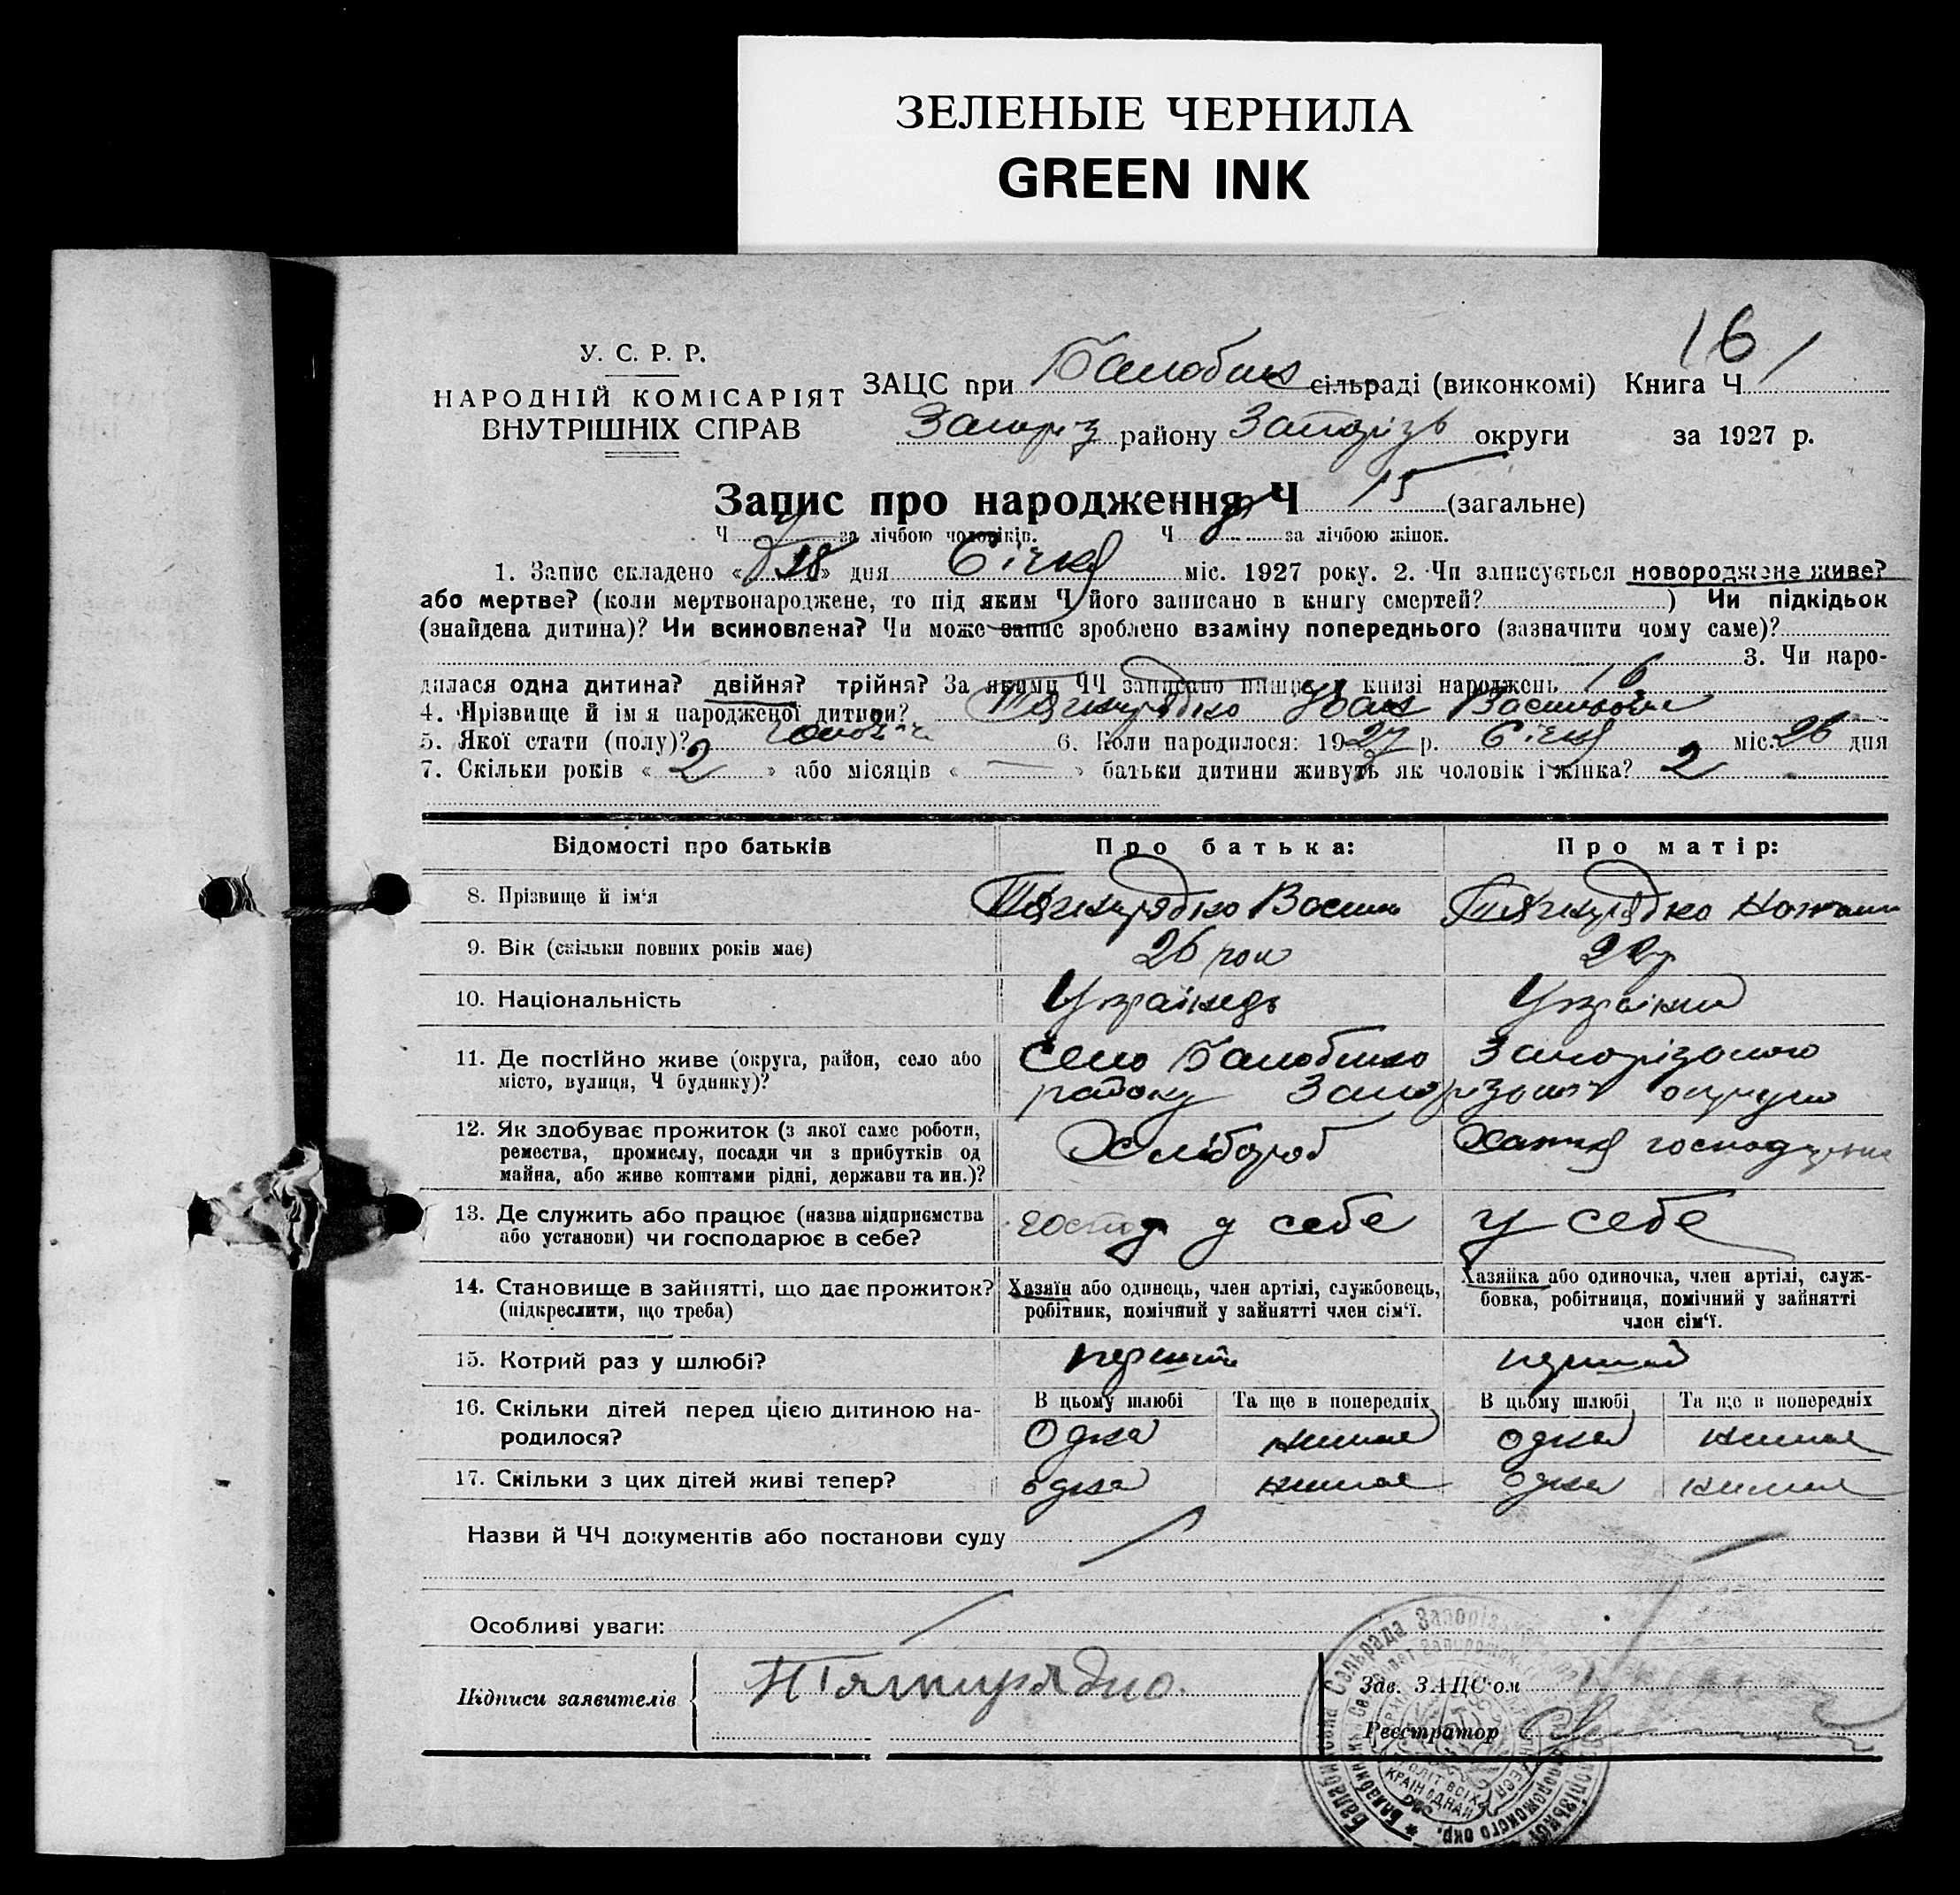 ЗЕЛЕНЫЕ ЧЕРНИЛА
GREEN INK
16
У. С. Р. Р.
НАРОДНІЙ КОМІСАРІЯТ
ВНУТРІШНІХ СПРАВ
ЗАЦС при Балобин сільраді (виконкомі) Книга Ч 1
Запоріз району Запорізь округи за 1927 р.
Запис про народження Ч 15 (загальне)
Ч за лічбою чоловіків. Ч за лічбою жінок.
1. Запис складено « 28 » дня Січня міс. 1927 року. 2. Чи записується новороджене живе?
або мертве? (коли мертвонароджене, то під яким Ч його записано в книгу смертей? ) Чи підкідьок
(знайдена дитина)? Чи всиновлена? Чи може запис зроблено взаміну попереднього (зазначити чому саме)?
3. Чи наро-
дилася одна дитина? двійня? трійня? За якими ЧЧ записано книзі народжень 16
4. Прізвище й ім'я народженої дитини? Тягнирядно Іван Васильови
5. Якої стати (полу)? чоловіч 6. Коли народилося: 1927 р. Січня міс. 26 дня
7. Скільки років « 2 » або місяців « — » батьки дитини живуть як чоловік і жінка? 2
Відомості про батьків Про батька: Про матір:
8. Прізвище й ім'я Тягнирядно Васил Тягнирядно
9. Вік (скільки повних років має) 26 рок 22 р
10. Національність Українець Українка
11. Де постійно живе (округа, район, село або Село Балобино Запорізького
місто, вулиця, Ч будинку)? району Запорізької округи
12. Як здобуває прожиток (з якої саме роботи, Хлібороб Хатня господарка
ремества, промислу, посади чи з прибутків од
майна, або живе коштами рідні, держави та ин.)?
13. Де служить або працює (назва підприємства господ у себе у себе
або установи) чи господарює в себе?
14. Становище в зайнятті, що дає прожиток? Хазяїн або одинець, член артілі, службовець, Хазяйка або одиночка, член артілі, служ-
(підкреслити, що треба) робітник, помічний у зайнятті член сім'ї. бовка, робітниця, помічний у зайнятті
член сім'ї.
15. Котрий раз у шлюбі? перший перший
16. Скільки дітей перед цією дитиною на- В цьому шлюбі Та ще в попередніх В цьому шлюбі Та ще в попередніх
родилося? Одна немає одна немає
17. Скільки з цих дітей живі тепер? одна немає одна немає
Назви й ЧЧ документів або постанови суду
Особливі уваги:
Підписи заявителів Тягнирядно. Зав. ЗАЦС'ом
Реєстратор